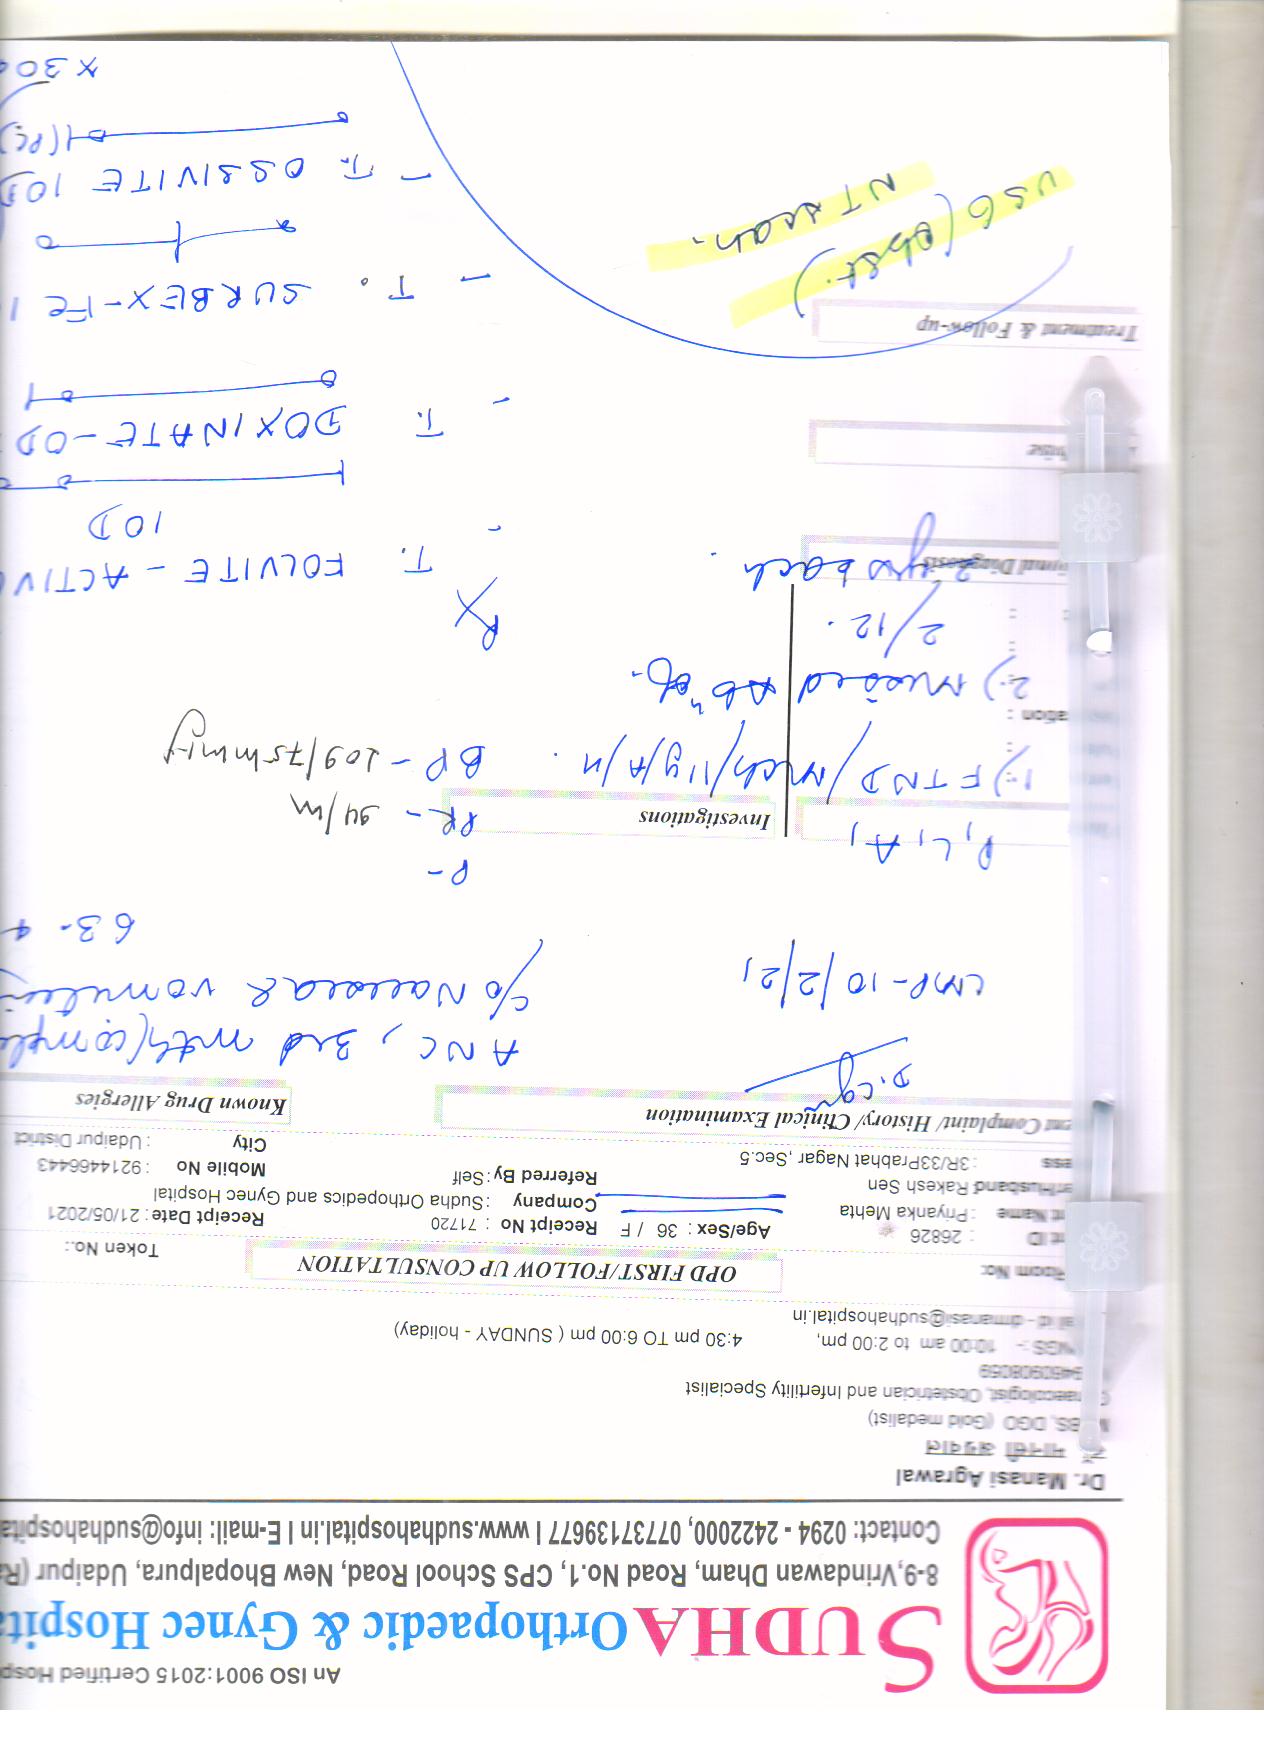 An ISO 9001:2015 Certified Hosp
SUDHA Orthopaedic & Gynec Hospita
8-9,Vrindawan Dham, Road No.1, CPS School Road, New Bhopalpura, Udaipur (Ra
Contact: 0294 - 2422000, 07737139677 I www.sudhahospital.in I E-mail: info@sudhahospita
Dr. Manasi Agrawal
डॉ. मानसी अग्रवाल
BS, DGO (Gold medalist)
naecologist, Obstetrician and Infertility Specialist
9460908059
NGS :- 10:00 am to 2:00 pm, 4:30 pm TO 6:00 pm ( SUNDAY - holiday)
ail id - drmanasi@sudhahospital.in
Room No:
OPD FIRST/FOLLOW UP CONSULTATION
Token No.:
nt ID : 26826
Age/Sex : 36 / F
Receipt No : 71720
Receipt Date : 21/05/2021
nt Name : Priyanka Mehta
Company : Sudha Orthopedics and Gynec Hospital
er/Husband Rakesh Sen
Referred By : Self
Mobile No : 9214466443
ess : 3R/33Prabhat Nagar ,Sec.5
City : Udaipur District
ent Complaint/ History/ Clinical Examination
Known Drug Allergies
ANC, 3rd mth/comple
LMP - 10/2/21
c/o Nausea & vomitin
63. 4
P -
P1 L1 A1
PR - 94/m
Investigations
BP - 109/75mmHg
1.) FTND/Mch/11y/A/H.
2.) Missed Abn of
2/12.
2 yrs back.
Rx
- T. FOLVITE - ACTIV
1OD
- T. DOXINATE - OD
- T. SURBEX-Fe 1
- T. OSSIVITE 1OD
1(PC)
x 30
ional Diagnosis
Treatment & Follow-up
USG (Obst.)
NT scan.